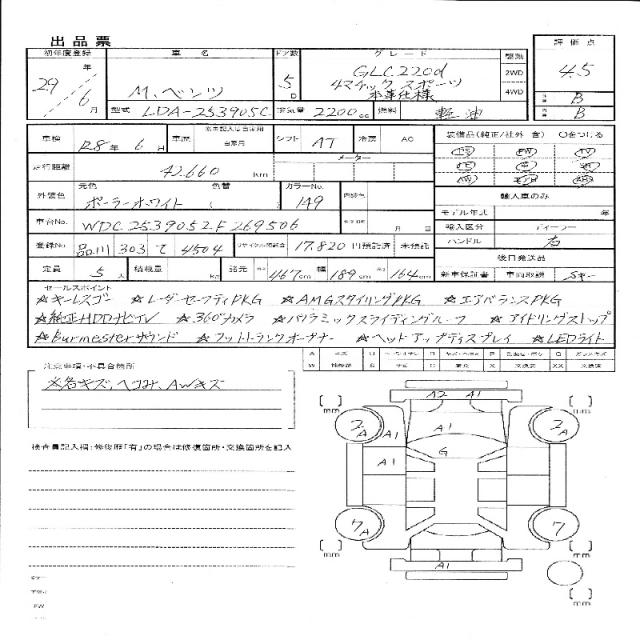 出品票
初年度登録 車名 ドア数 グレード 駆動 評価点
29年 6月 M.ベンツ 5D GLC220d 2WD 4.5
4マチックスポーツ 4WD
本革仕様 B
型式 LDA-253905C 排気量 2200cc 燃料 軽油 B
車検 R8年6月 車歴 自家用 シフト AT 冷房 AC 装備品(純正/社外 含) ○をつける
走行距離 42,660km メーター
外装色 元色 ポーラーホワイト 色替 カラーNo. 149 内装色 輸入車のみ
モデル年式 年
車台No. WDC2539052F269506 月 日 輸入区分 ディーラー
登録No. 品川 303 て 4504 リサイクル預託金 17,820円預託済 未預託 ハンドル 右
後日発送品
定員 5人 積載量 kg 諸元 長さ 467cm 幅 189cm 高さ 164cm 新車保証書 車両取説 Sキー
セールスポイント
☆キーレスゴー ☆レーダーセーフティPKG ☆AMGスタイリングPKG ☆エアバランスPKG
☆純正HDDナビTV ☆360°カメラ ☆パノラミックスライディングルーフ ☆アイドリングストップ
☆Burmesterサウンド ☆フットトランクオープナー ☆ヘッドアップディスプレイ ☆LEDライト
注意事項・不具合箇所
※各キズ、ヘコみ、AWキズ
検査員記入欄:修復歴「有」の場合は修復箇所・交換箇所を記入
A2 A1
A1
2A A1 2A
G
A1
7A 7
A1
mm mm
mm mm
mm